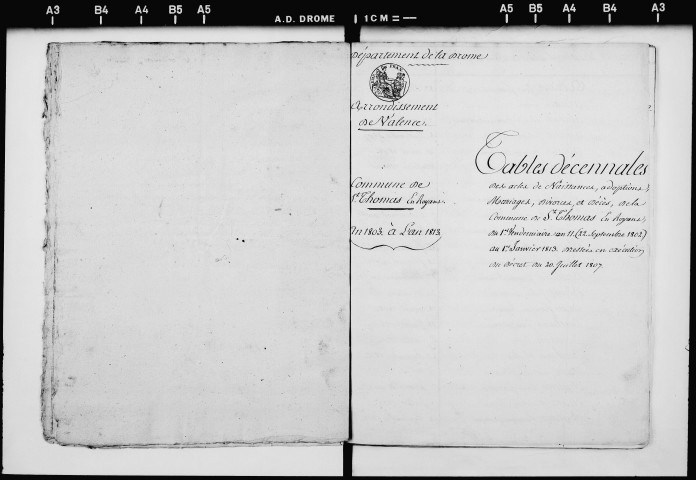 A3 B4 A4 B5 A5
A.D. DROME
1 CM =
A5 B5 A4 B4 A3
Département de la Drome
Arrondissement
de Valence.
Commune de
St. Thomas En Royans.
An 1803, à L'an 1813
Tables décennales
des actes de Naissances, adoptions,
Mariages, divorces, et décès, de la
Commune de St. Thomas En Royans,
du 1er. Vendemiaire an 11. (22. Septembre 1802.)
au 1er. Janvier 1813. dressées en exécution
du décret du 20. Juillet 1807.